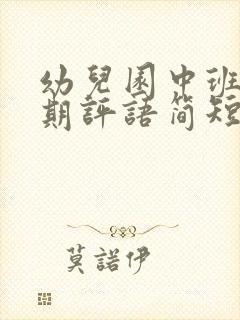 幼兒園中班
期評語简短
莫諾伊